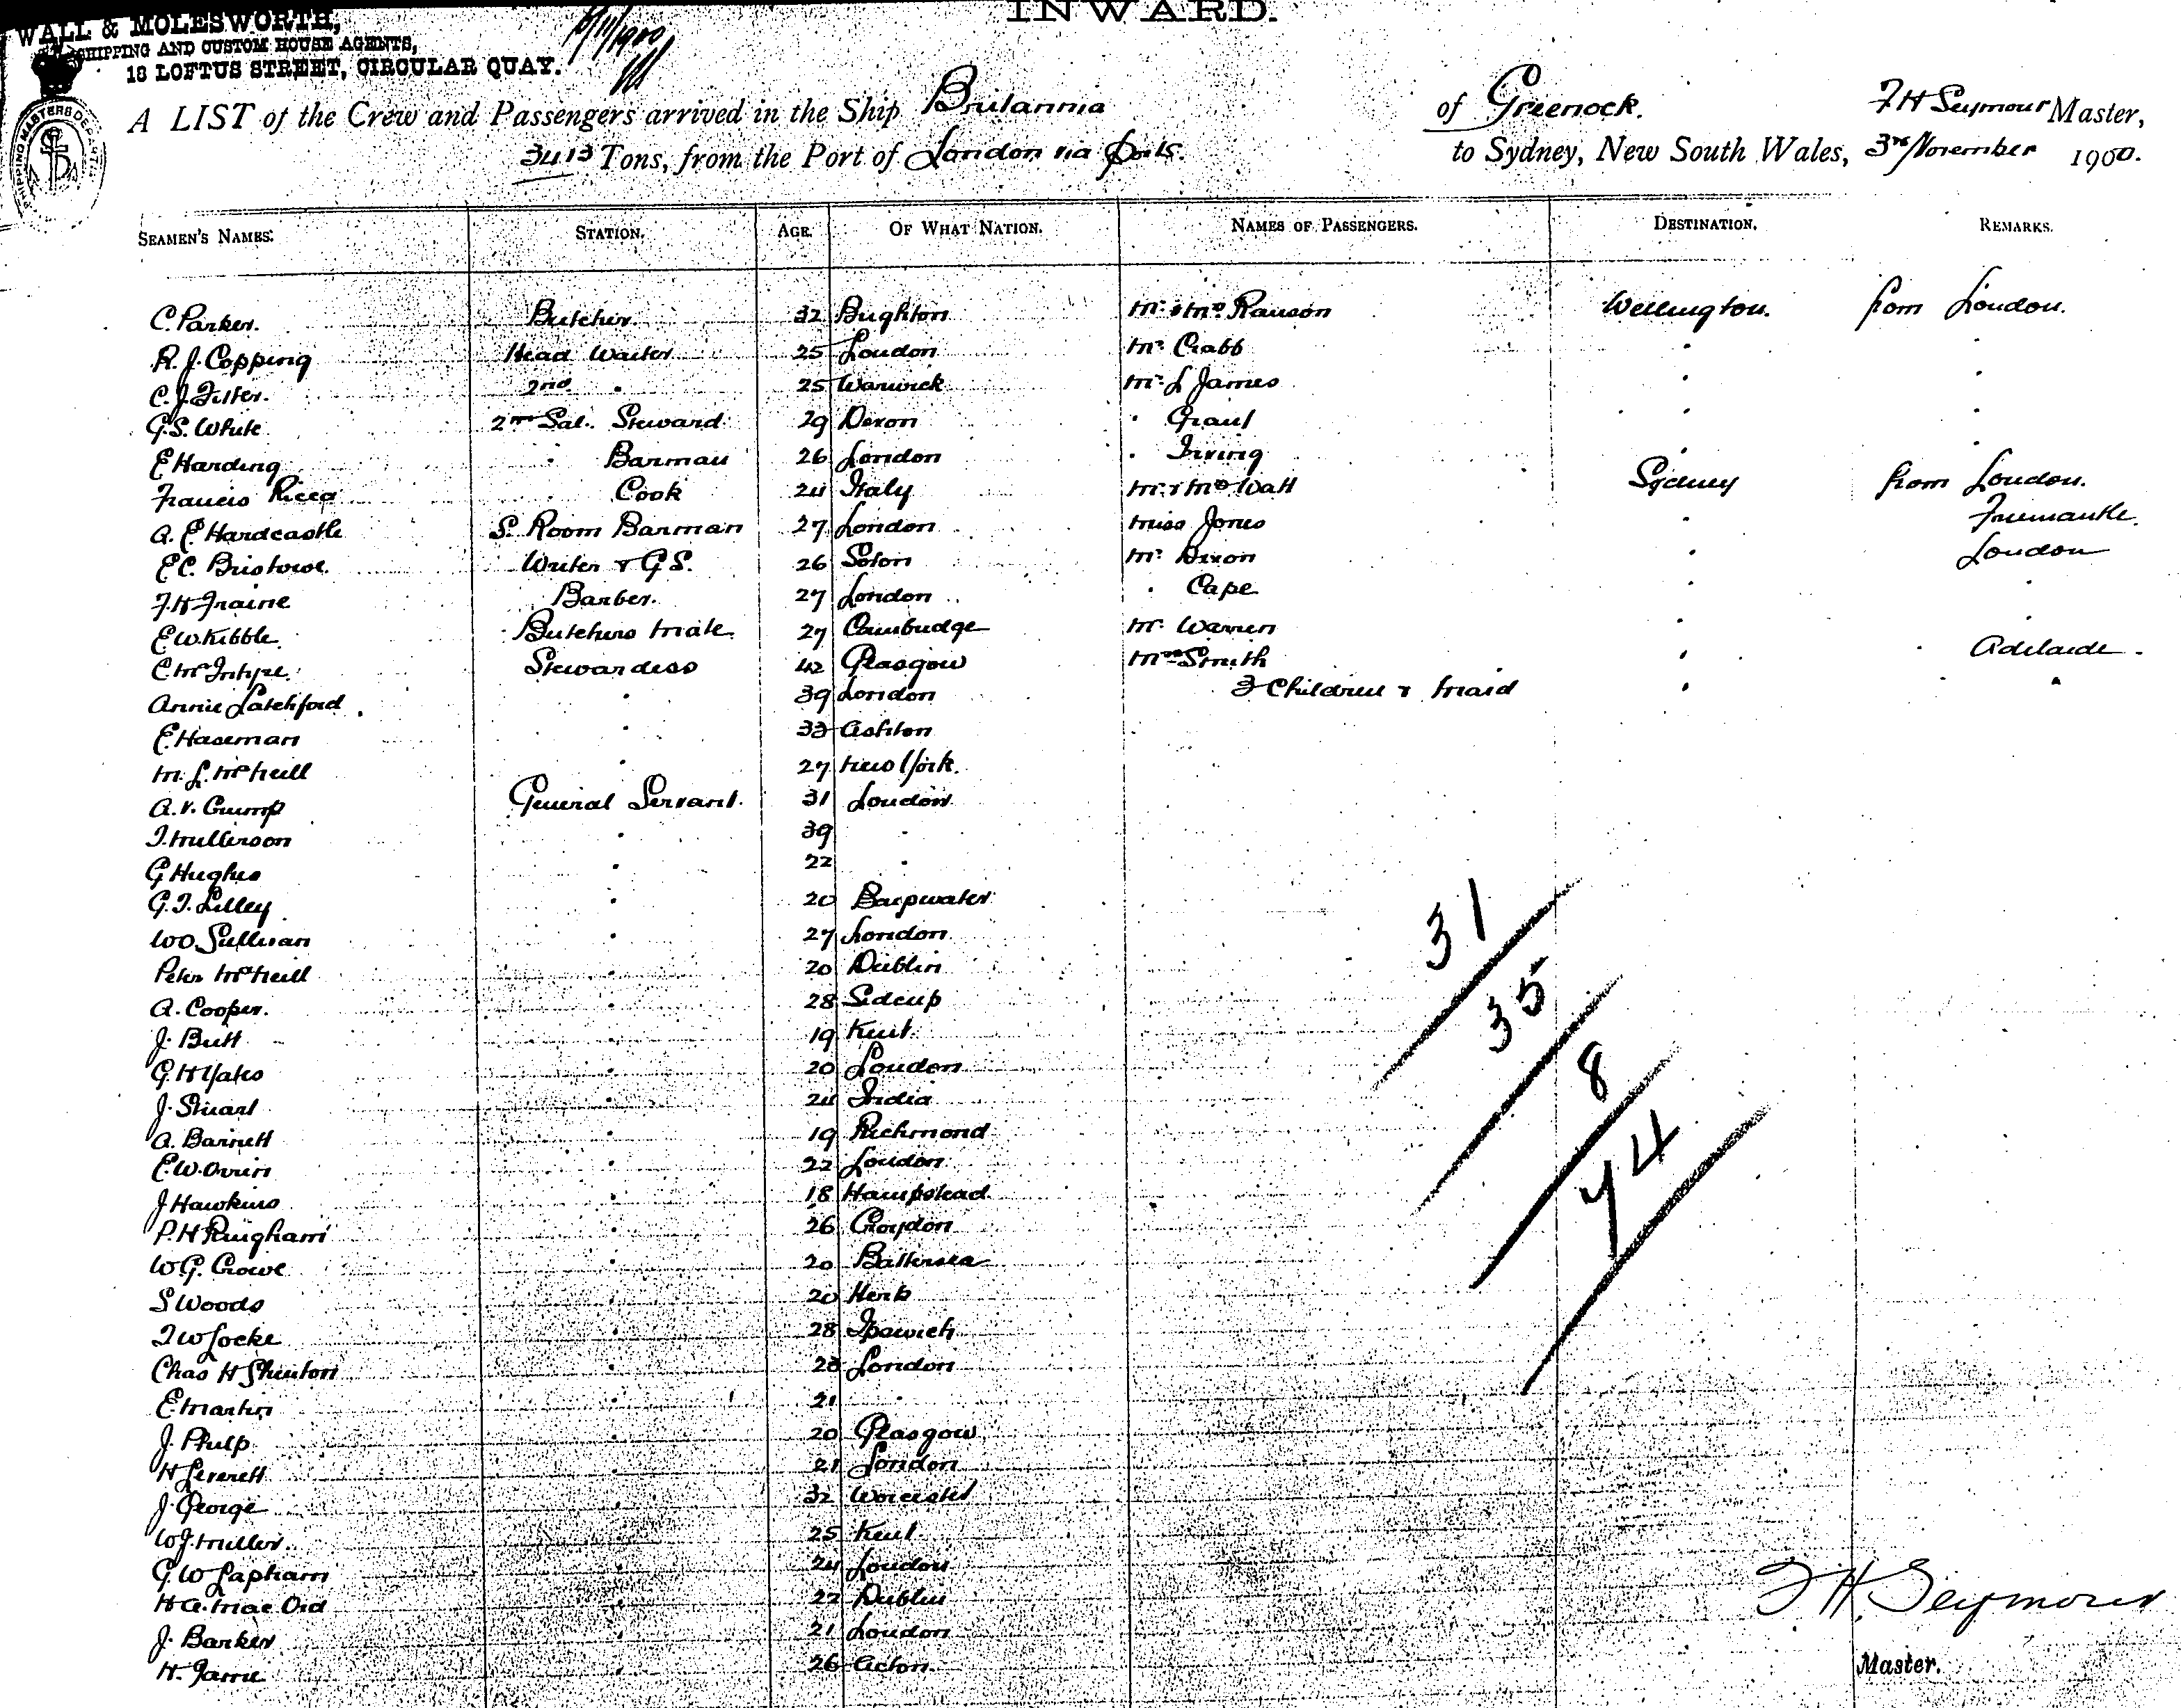 INWARD.
WALL & MOLESWORTH,
SHIPPING AND CUSTOM HOUSE AGENTS,
18 LOFTUS STREET, CIRCULAR QUAY.
SHIPPING MASTERS DEP
A LIST of the Crew and Passengers arrived in the Ship Britannia of Greenock. F H Seymour Master,
3413 Tons, from the Port of London via Ports. to Sydney, New South Wales, 3rd November 1900.
SEAMEN'S NAMES. STATION. AGE. OF WHAT NATION. NAMES OF PASSENGERS. DESTINATION. REMARKS.
C. Parker. Butcher 32 Brighton Mr & Mrs Wellington. from London.
R. J. Copping Head Waiter 25 London Mr Crabb " "
C. J. 2nd " 25 Warwick Mr L James " "
G. S. White 2nd Sal. Steward 29 Devon " Grant " "
E Harding " Barman 26 London " Irving " "
Francis Cook 24 Italy Mr & Mrs Watt Sydney from London.
A. E Hardcastle S. Room Barman 27 London Miss Jones " Fremantle.
E C. Bristowe. Writer & G S. 26 Mr Dixon " London
F. H Fraine Barber. 27 London " Cape " "
E W. Kibble. Butchers Mate. 27 Cambridge Mr Warren " "
C McIntyre. Stewardess 42 Glasgow Mrs Smith " Adelaide.
Annie Latchford " 39 London 3 Children & Maid " "
E. Haseman " 33 Ashton
M. L. McNeill " 27 New York.
A. V. Crump General Servant. 31 London
" 39 "
G Hughes " 22 "
G. T. Lilley " 20
W O. Sullivan " 27 London
Peter McNeill " 20 Dublin
A. Cooper. " 28 Sidcup
J. Butt " 19 Kent.
G. H Yates " 20 London
J. Stuart " 24 India
A. Barnett " 19 Richmond
E. W. " 22 London
J Hawkins " 18 Hampstead
P. H Ringham " 26 Croydon
W G. Crowe " 20 Battersea
S Woods " 20 Herts
T W Locke " 28 Ipswich
Chas H Shenton " 28 London
E. Martin " 21 "
J. Philp " 20 Glasgow
H Leverett " 21 London
J. George " 32 Worcester
W J. Miller. " 25 Kent
G W Lapham " 24 London
H A. " 22 Dublin
J. Barker " 21 London
H. " 26 Acton.
31
35
8
74
F H. Seymour
Master.